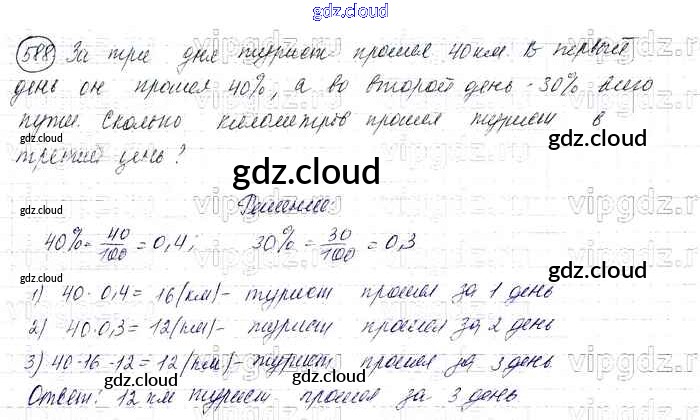 gdz.cloud
588 За три дня турист прошел 40 км. В первый
день он прошел 40%, а во второй день - 30% всего
пути. Сколько километров прошел турист в
третий день?
gdz.cloud
gdz.cloud
vipgdz.ru
Решение:
40% = 40/100 = 0,4; 30% = 30/100 = 0,3
gdz.cloud
gdz.cloud
1) 40 · 0,4 = 16 (км) - турист прошел за 1 день
2) 40·0,3 = 12 (км) - турист прошел за 2 день
3) 40-16-12 = 12 (км) - турист прошел за 3 день
gdz.cloud
gdz.cloud
Ответ: 12 км турист прошел за 3 день
gdz.cloud